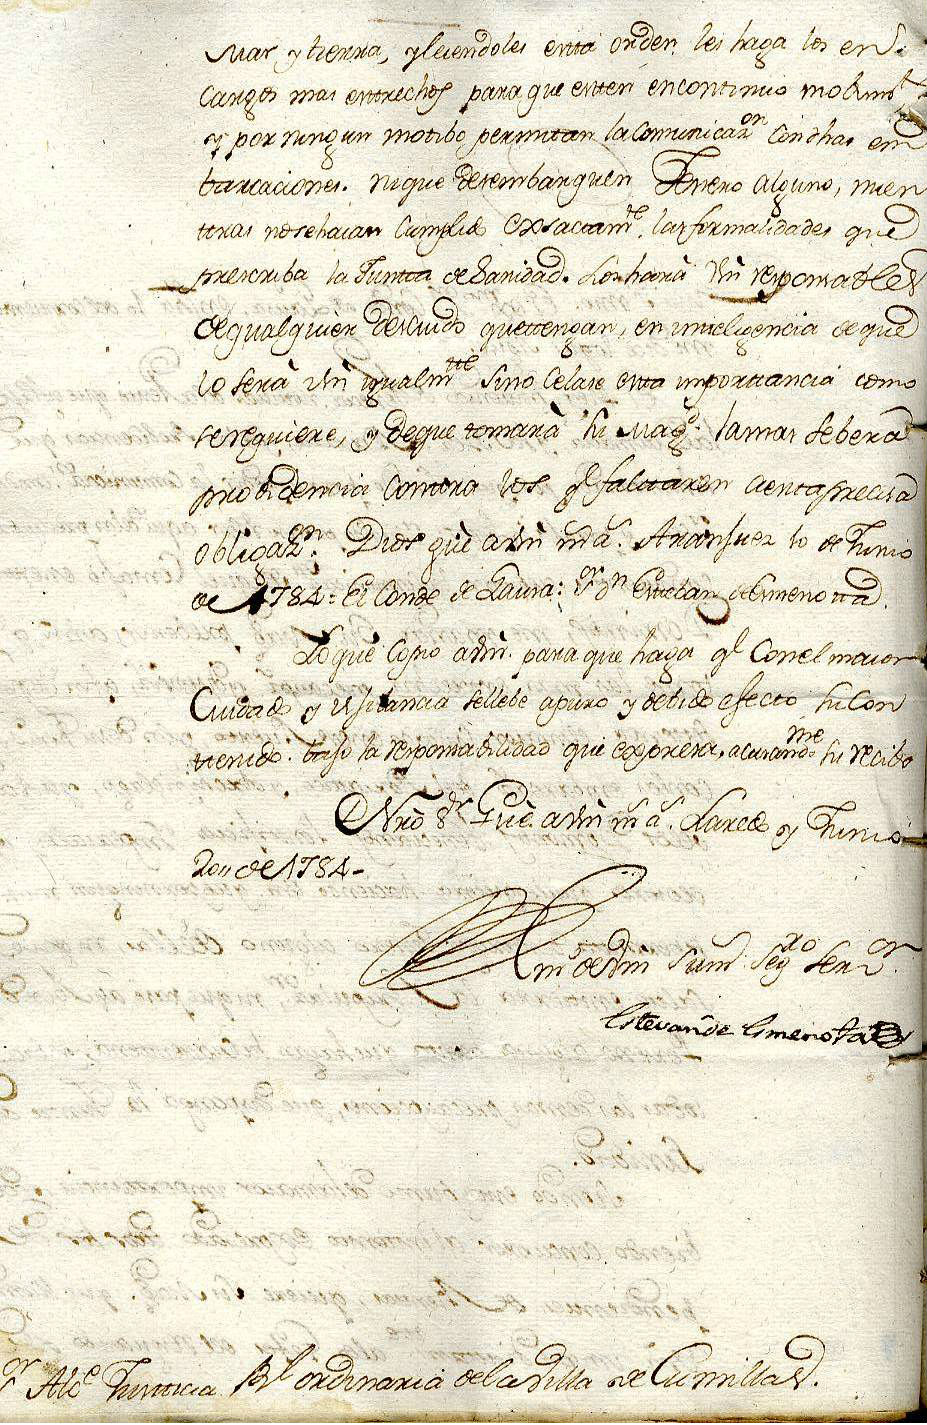 Mar y tierra, y leiendoles esta orden les haga los en
cargos mas estrechos para que esten encontinuo mobimto
y por ningun motibo permitan la comunicaz.on con dhas em
barcaciones. ni que desembarquen Jenero alguno, mien
tras no se haian cumplido exsactamte. las formalidades que
prescriba la Junta de Sanidad. Los hará Vm responsables
de qualquier descuido que tengan, en inteligencia de que
lo será Vm igualmte sino celase esta importancia como
se requiere, y de que tomará Su Magd. la mas sebera
probidencia contra los q faltaren a esta precisa
obligazn. Dios gue a Vm ms as. Aranjuez 10 de Junio
de 1784 = El Conde de Lausa: Sor Dn Esteban de Esmenotta
Lo que copio a Vm. para que haga ql con el maior
Cuidado y Vijilancia se llebe a puro y debido efecto su con
tenido. bajo la responsabilidad que expresa, acusandome su recibo
Ntro Sr Gue. a Vm ms as. Laredo y Junio
20,, de 1784-
Bm deVm Sum Segxo Seror.
Estevan de Esmenota
or Alce Justicia Rl ordinaria de la Villa de Cumillas.